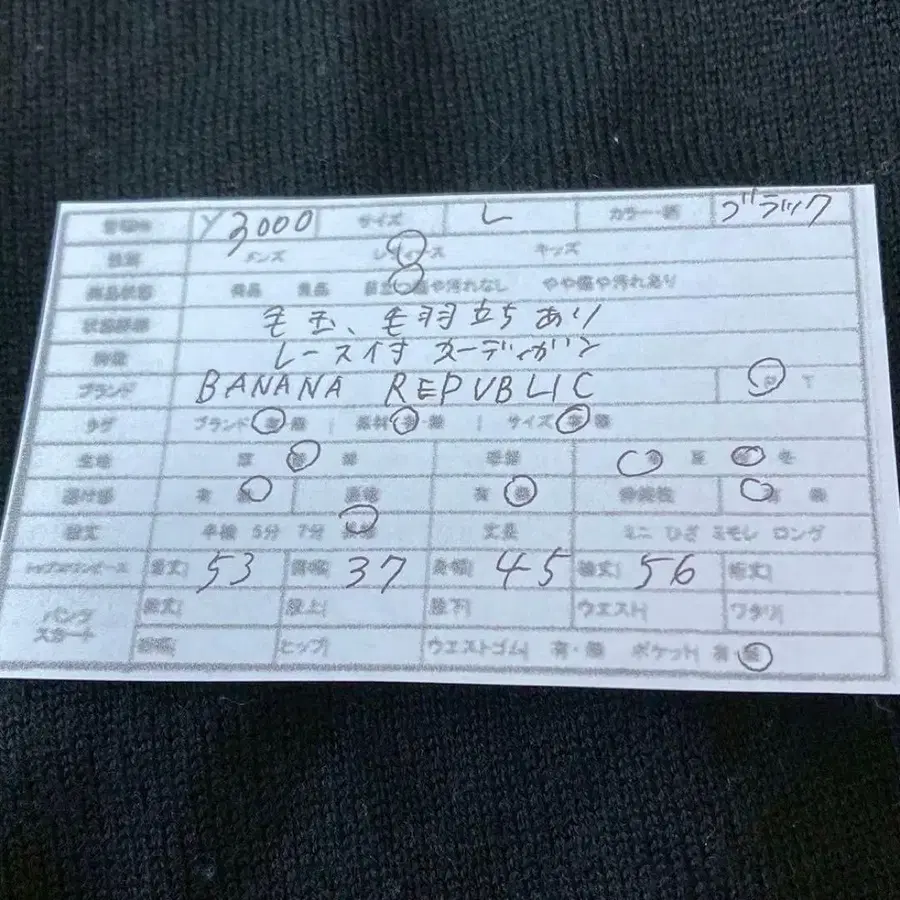 Y3000 サイズ L カラー・柄 ブラック
メンズ レディース キッズ
商品状態 新品 美品 目立つ傷や汚れなし やや傷や汚れあり
毛玉、毛羽立ちあり
レース付 カーディガン
ブランド BANANA REPUBLIC
タグ ブランド 有・無 | 素材 有・無 | サイズ 有・無
生地 厚 普 薄 季節 春 夏 秋 冬
透け感 有 無 裏地 有 無 伸縮性 有 無
袖丈 半袖 5分 7分 長袖 丈長 ミニ ひざ ミモレ ロング
トップス/ワンピース 着丈 53 肩幅 37 身幅 45 袖丈 56 裄丈
パンツ 総丈 股上 股下 ウエスト ワタリ
スカート 裾幅 ヒップ ウエストゴム 有・無 ポケット 有 無